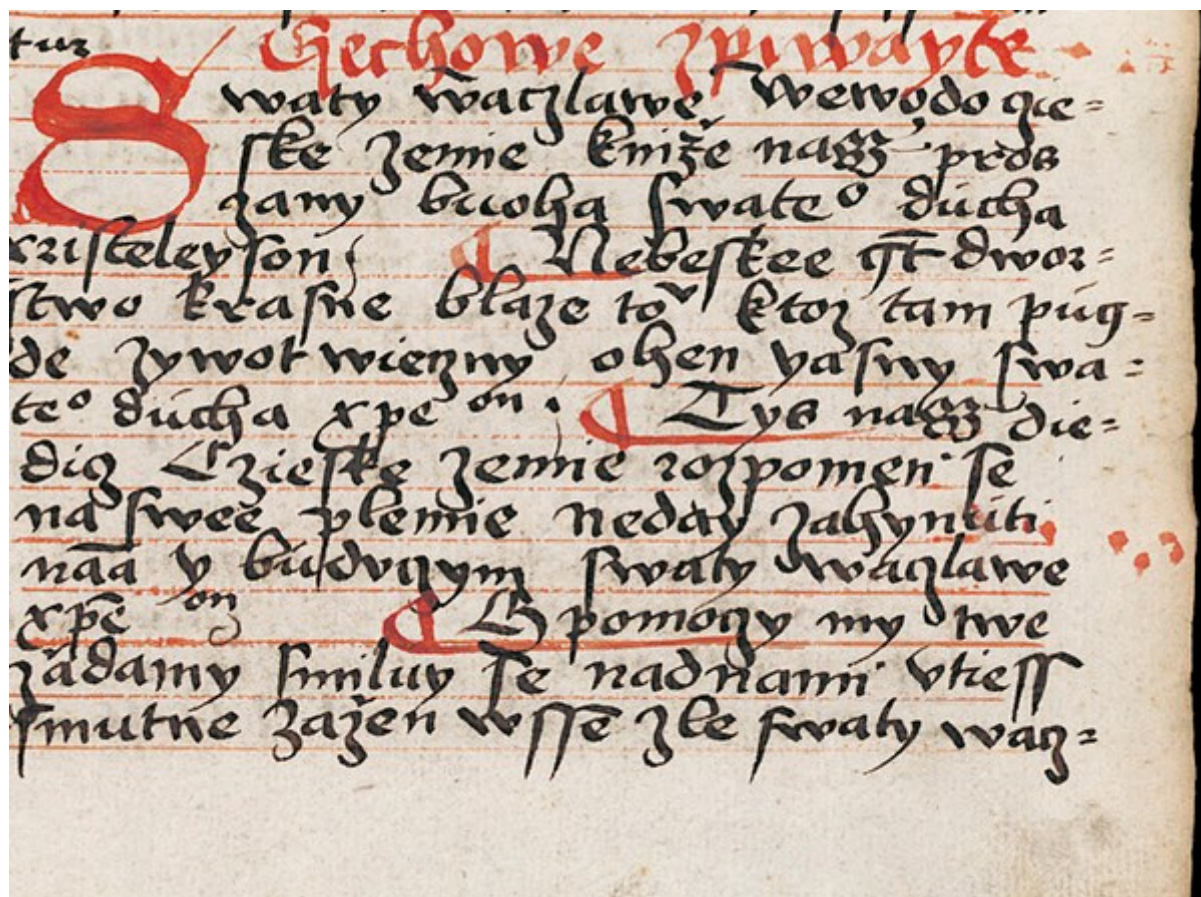 tur Czechowe zpiwayte
Swaty waczlawe wewodo cze=
ske zemie knize nass pros
zany buoha swateo ducha
kristeleyson Nebeskee gt dwor=
stwo krasne blaze tov ktoz tam pug=
de zywot wieczny ohen yasny swa=
teo ducha xpe on Tys nass die=
dicz Czieske zemie rozpomen se
na swee plemie neday zahynuti
naa y buducym swaty waczlawe
xpe on Pomoczy my twe
zadamy smiluy se nadnami vtiess
smutne zazen wsse zle swaty wacz=